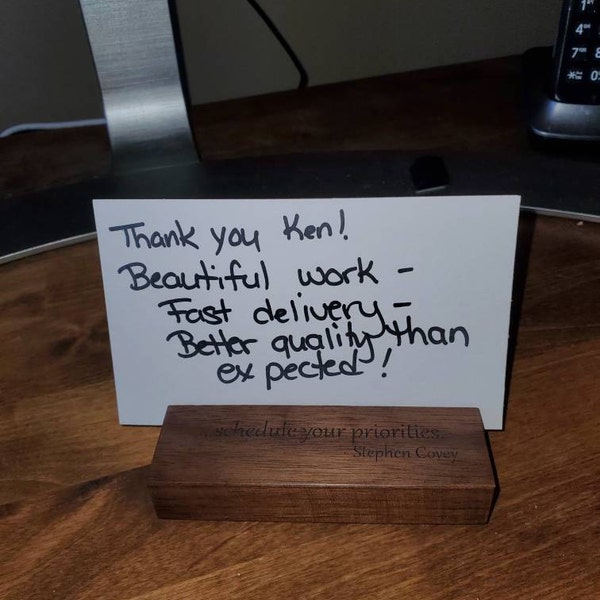 Thank you Ken!
Beautiful work -
Fast delivery -
Better quality than
expected!
..schedule your priorities.
- Stephen Covey
1
4
7 8
* 0